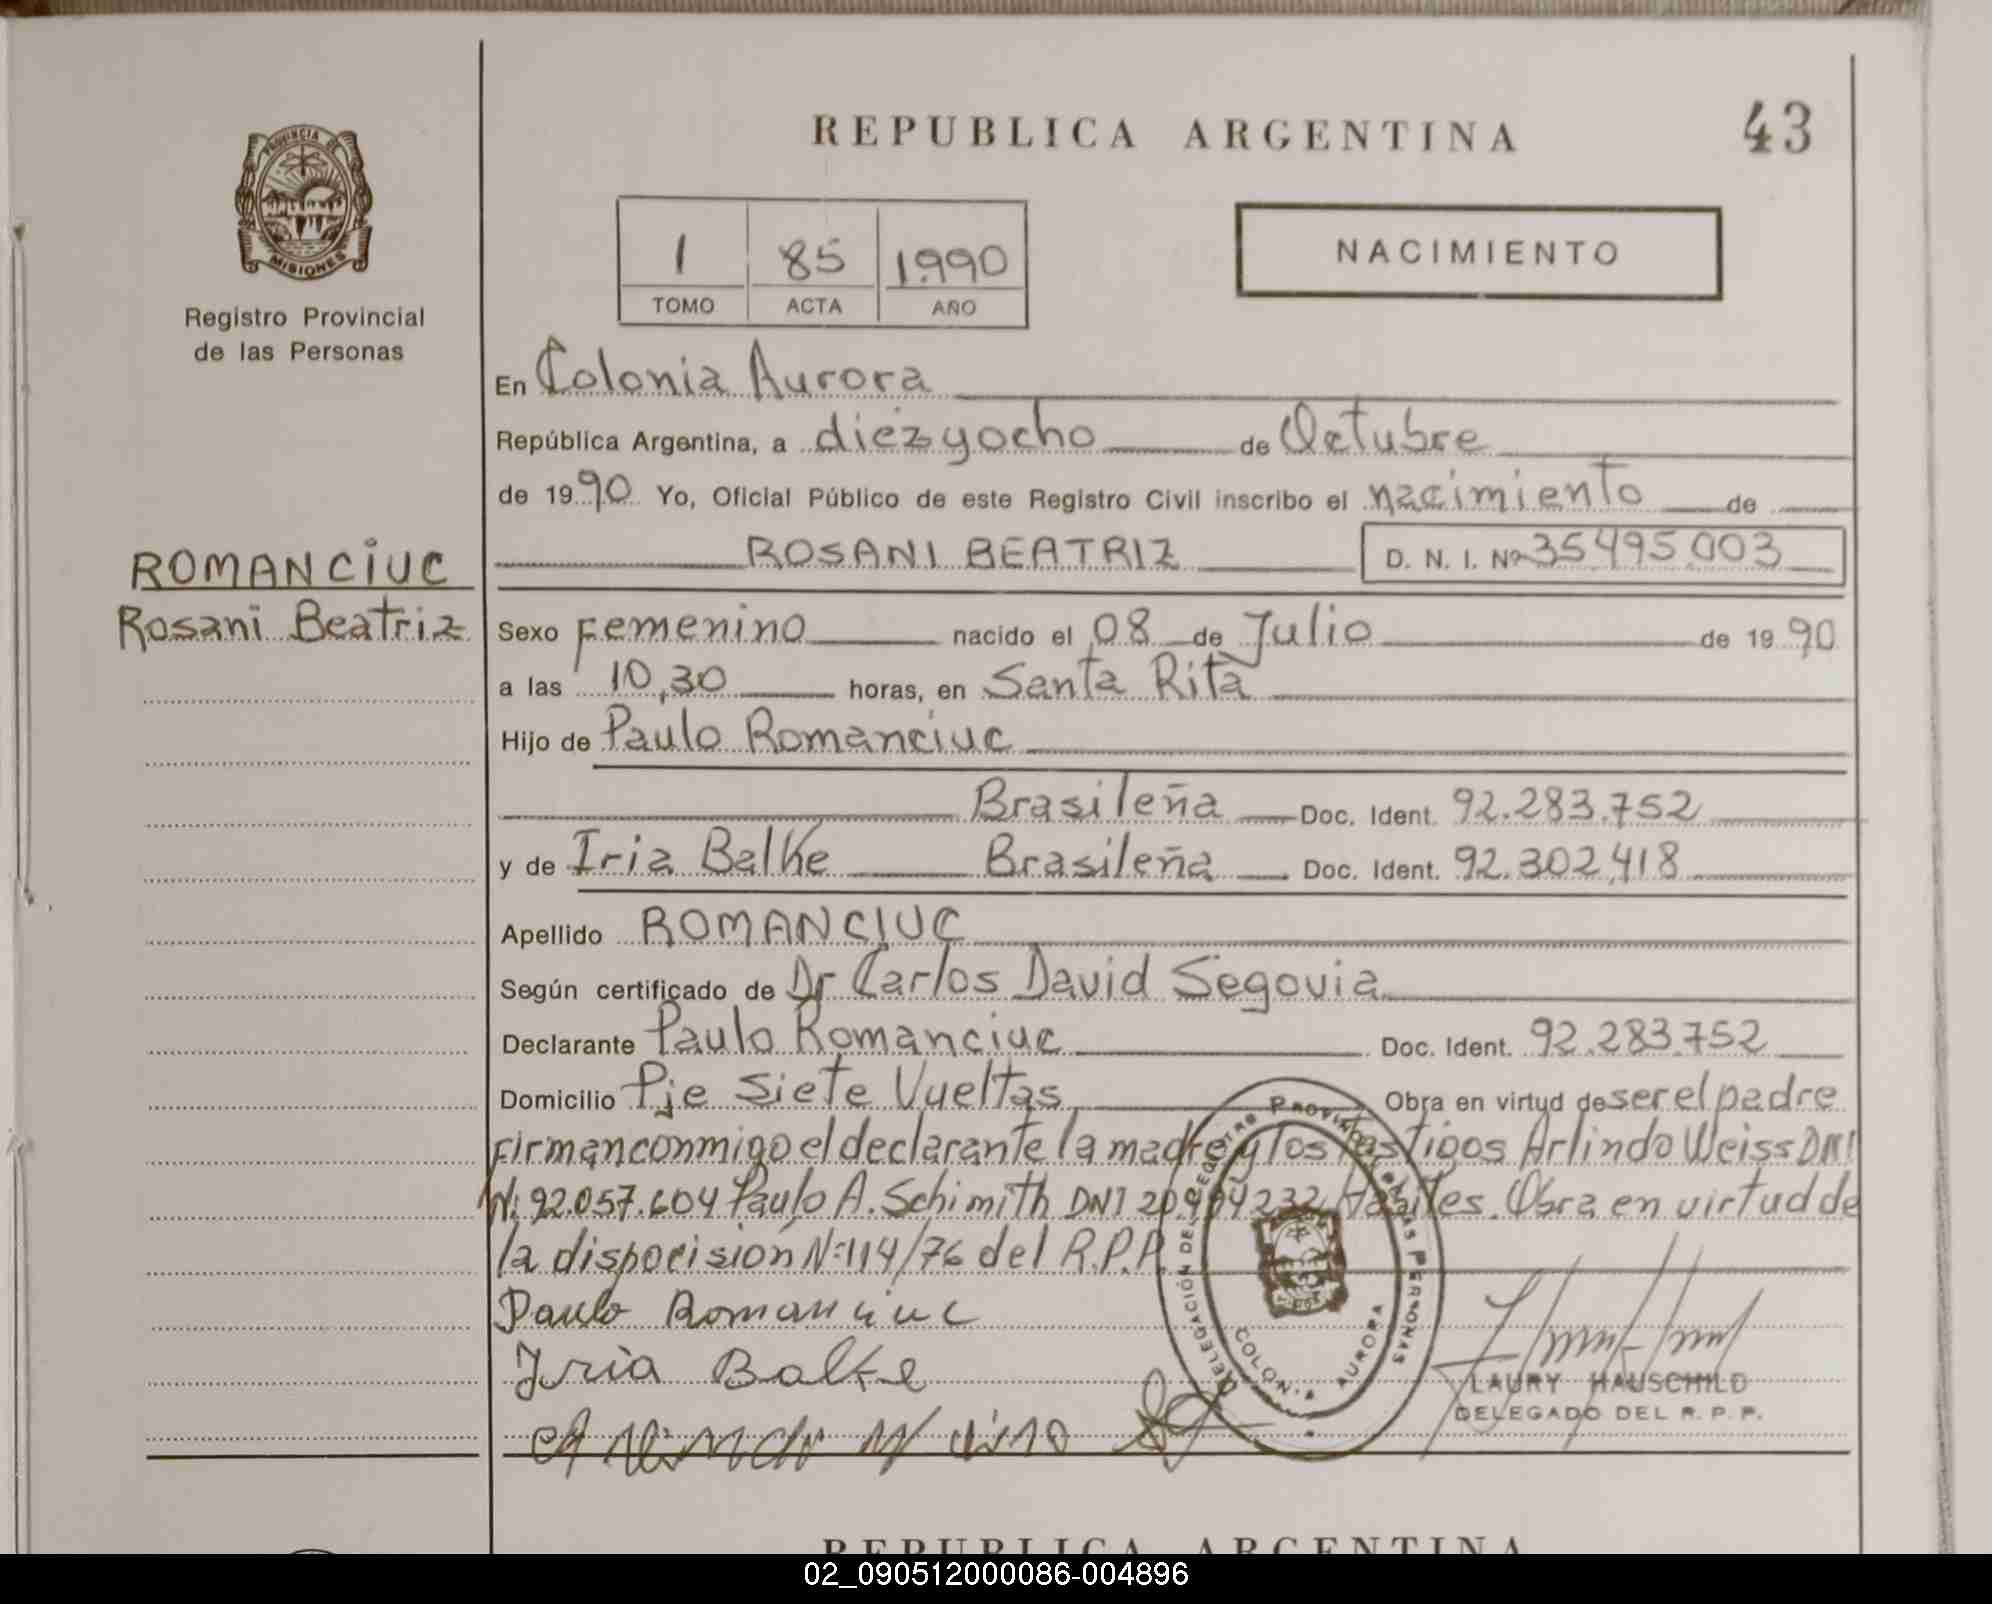 REPUBLICA ARGENTINA
43
PROVINCIA DE
MISIONES
Registro Provincial
de las Personas
1 85 1990
TOMO ACTA AÑO
NACIMIENTO
En Colonia Aurora
República Argentina, a diez y ocho de Octubre
de 1990 Yo, Oficial Público de este Registro Civil inscribo el nacimiento de
ROMANCIUC
Rosani Beatriz
ROSANI BEATRIZ D. N. I. Nº 35495.003
Sexo Femenino nacido el 08 de Julio de 1990
a las 10,30 horas, en Santa Rita
Hijo de Paulo Romanciuc
Brasileña Doc. Ident. 92.283.752
y de Iria Balke Brasileña Doc. Ident. 92.302.418
Apellido ROMANCIUC
Según certificado de Dr Carlos David Segovia
Declarante Paulo Romanciuc Doc. Ident. 92.283.752
Domicilio Pje Siete Vueltas Obra en virtud de ser el padre
Firman conmigo el declarante la madre y los tastigos Arlindo Weiss DNI
Nº 92.057.604 Paulo A. Schimith DNI 20.494232 Habiles. Obra en virtud de
la dispocision Nº 114/76 del R.P.P.
Paulo Romanciuc
Iria Balke
DELEGACIÓN DEL REGISTRO PROVINCIAL DE LAS PERSONAS
COLONIA AURORA
LAURY HAUSCHILD
DELEGADO DEL R. P. P.
REPUBLICA ARGENTINA
02_090512000086-004896